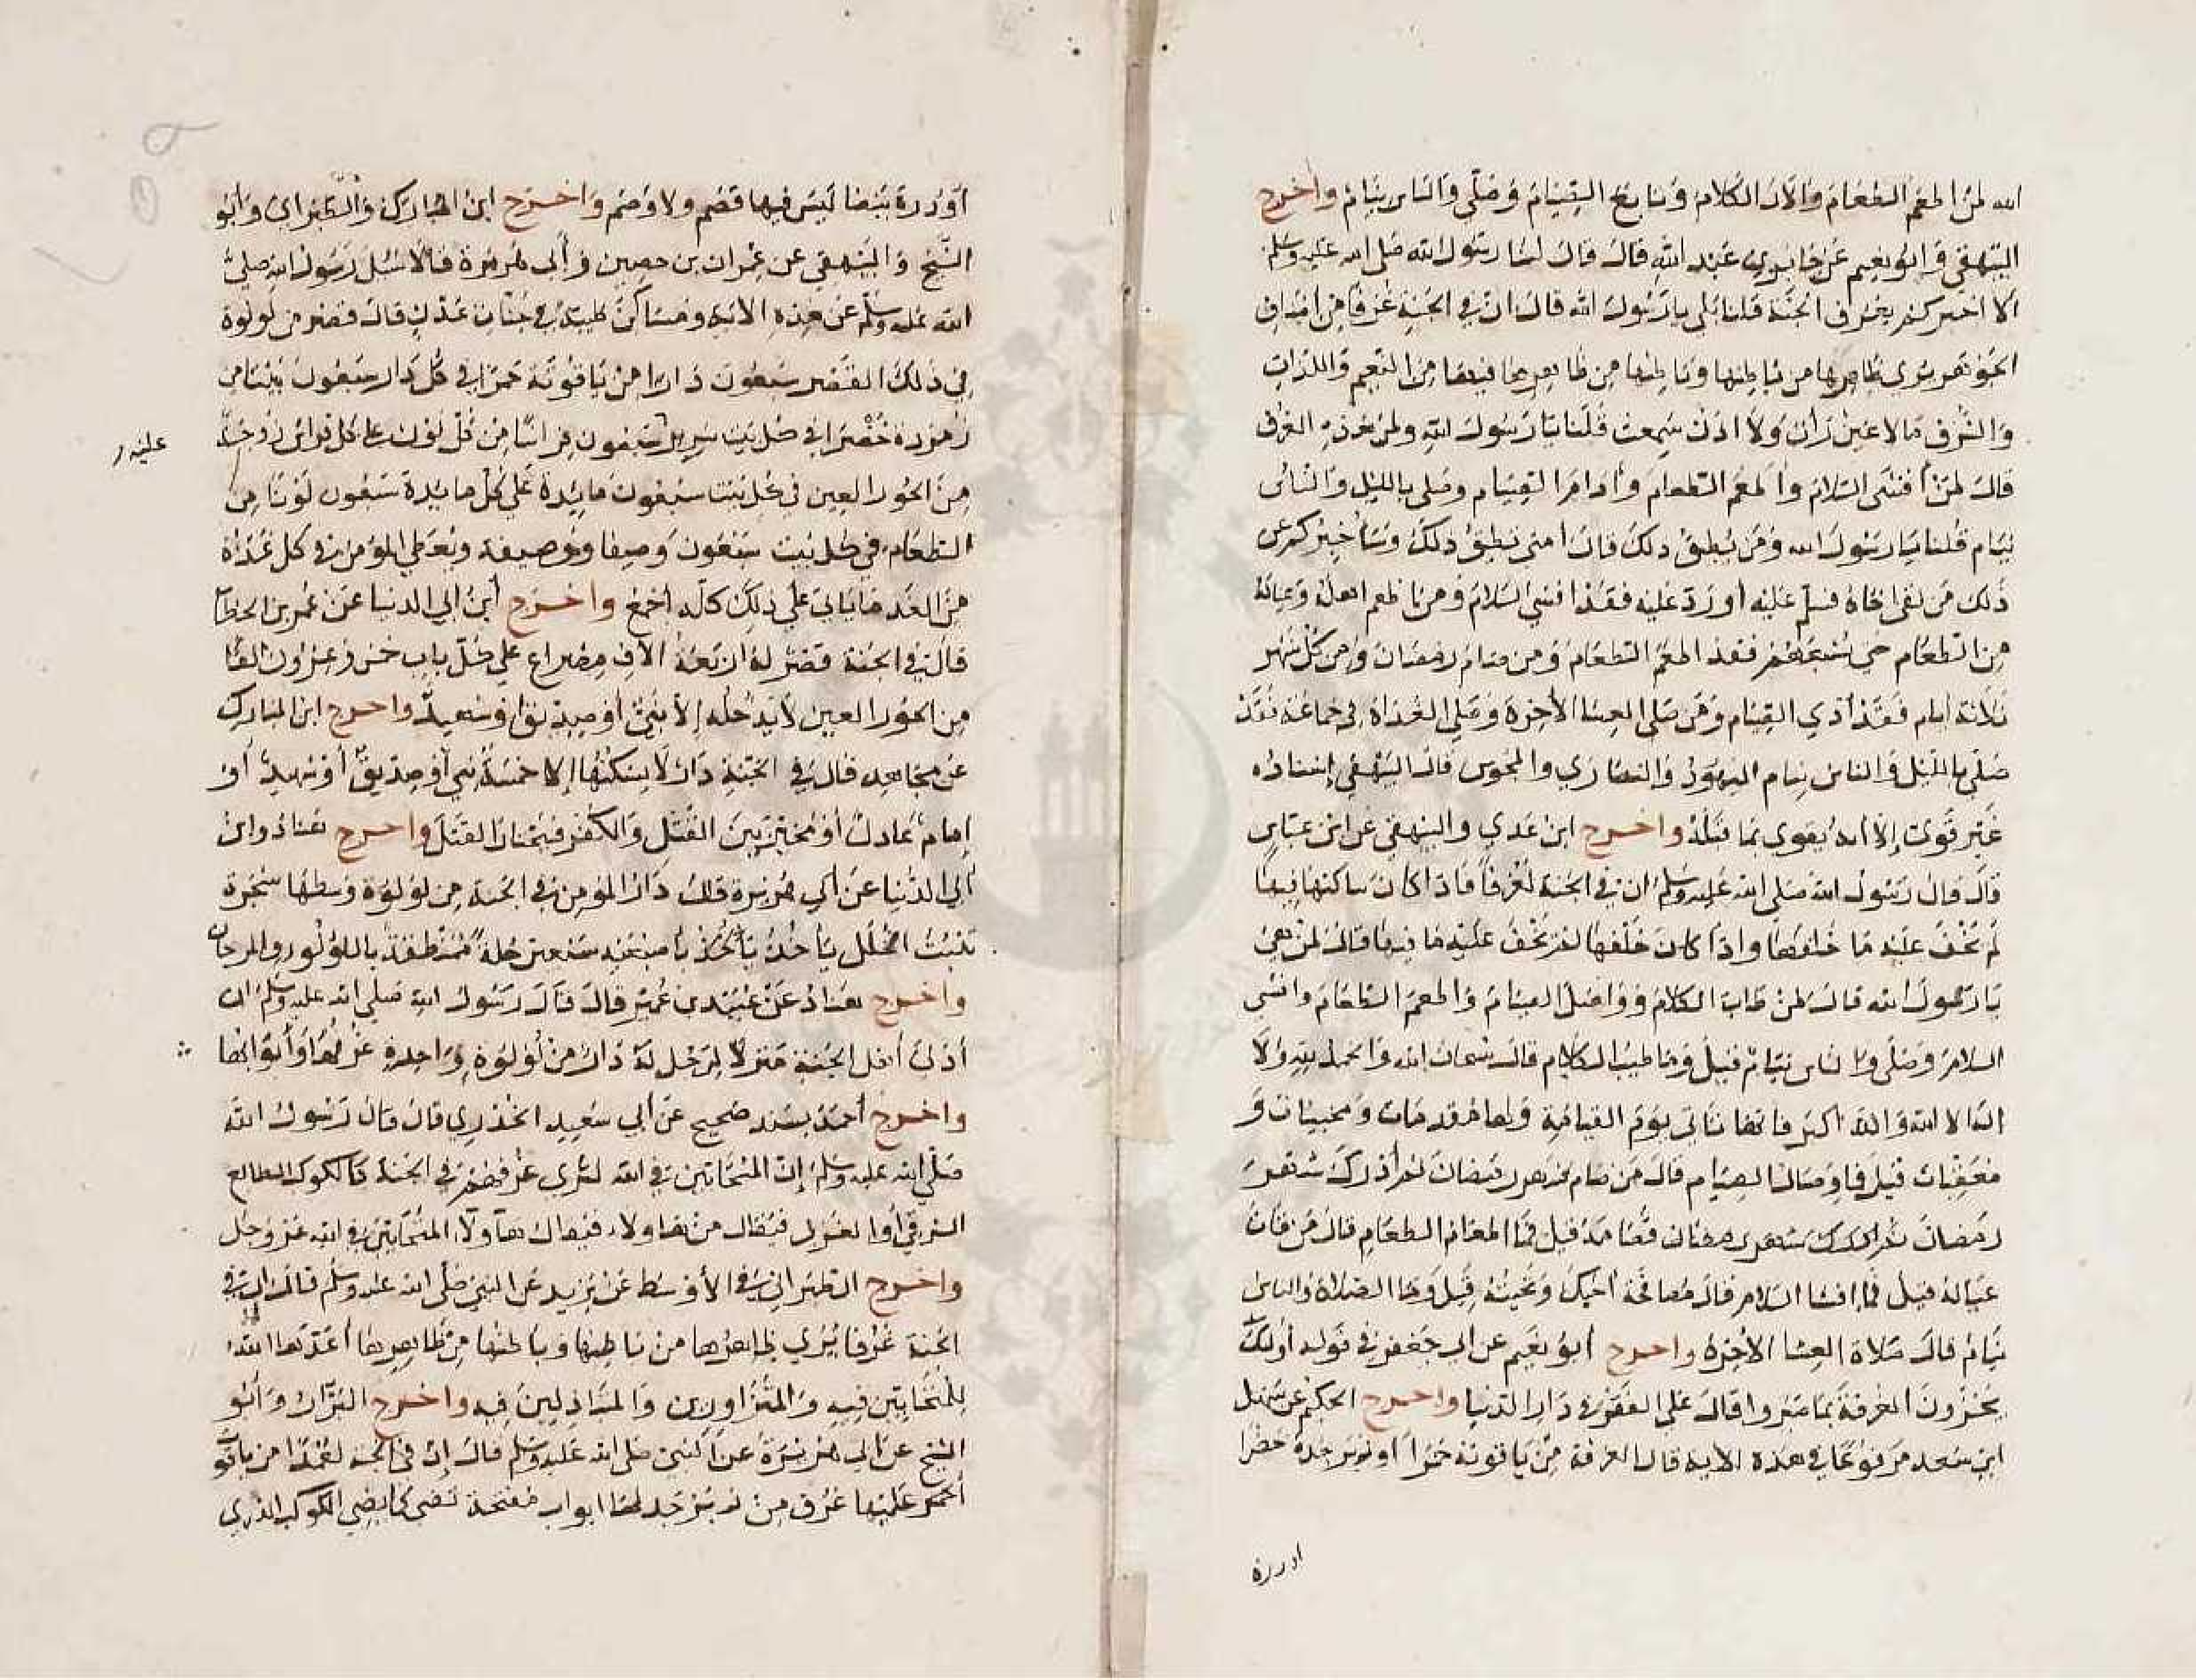 الله لمن اطعم الطعام وألان الكلام وتابع الصيام وصلى والناس نيام واخرج
البيهقي وابو نعيم عن جابر بن عبد الله قال قال لنا رسول الله صلى الله عليه وسلم
ألا اخبركم بغرف الجنة قلنا بلى يا رسول الله قال ان في الجنة غرفا من اصناف
الجوهر يرى ظاهرها من باطنها وباطنها من ظاهرها فيها من النعيم واللذات
والشرف ما لا عين رأت ولا اذن سمعت قلنا يا رسول الله ولمن هذه الغرف
قال لمن أفشى السلام وأطعم الطعام وأدام الصيام وصلى بالليل والناس
نيام قلنا يا رسول الله ومن يطيق ذلك قال امتي تطيق ذلك وسأخبركم عن
ذلك من لقي اخاه فسلم عليه أو رد عليه فقد افشى السلام ومن اطعم اهله وعياله
من الطعام حتى يشبعهم فقد اطعم الطعام ومن صام رمضان ومن كل شهر
ثلاثة ايام فقد أدى الصيام ومن صلى العشا الأخرة وصلى الغداة في جماعة فقد
صلى بالليل والناس نيام اليهود والنصارى والمجوس قال البيهقي إسناده
غير قوي إلا انه يقوى بما قبله واخرج ابن عدي والبيهقي عن ابن عباس
قال قال رسول الله صلى الله عليه وسلم ان في الجنة لغرفا فاذا كان ساكنها فيها
لم يخف عليه ما خلفها واذا كان خلفها لم يخف عليه ما فيها قال لمن هي
يا رسول الله قال لمن طاب الكلام وواصل الصيام واطعم الطعام وافشى
السلام وصلى والناس نيام قيل وما طيب الكلام قال سبحان الله والحمد لله ولا
اله الا الله والله اكبر فانها تاتي يوم القيامة ولها مقدمات ومجنبات و
معقبات قيل فما وصال الصيام قال من صام شهر رمضان ثم أدرك شهر
رمضان ثم ادرك شهر رمضان فصامه قيل فما اطعام الطعام قال من قات
عياله قيل فما افشا السلام قال مصافحة اخيك وتحيته قيل وما الصلاة والناس
نيام قال صلاة العشا الأخرة واخرج أبو نعيم عن ابي جعفر في قوله أولئك
يجزون الغرفة بما صبروا قال على الفقر في دار الدنيا واخرج الحكيم عن سهل
ابن سعد مرفوعا في هذه الاية قال الغرفة من ياقوتة حمرا او زبرجدة خضرا
او درة
أو درة بيضا ليس فيها قصم ولا وصم واخرج ابن المبارك والطبراني وأبو
الشيخ والبيهقي عن عمران بن حصين وأبي هريرة قالا سئل رسول الله صلى
الله عليه وسلم عن هذه الآية ومساكن طيبة في جنات عدن قال قصر من لولوة
في ذلك القصر سبعون دارا من ياقوتة حمرا في كل دار سبعون بيتا من
زمردة خضرا في كل بيت سرير سبعون فراشا من كل لون على كل فراش زوجة
عليه
من الحور العين في كل بيت سبعون مايدة على كل مايدة سبعون لونا من
الطعام في كل بيت سبعون وصيفا ووصيفة ويعطي المؤمن في كل غداة
من الغد ما ياتي على ذلك كله أجمع واخرج أبن ابي الدنيا عن عمر بن الخطاب
قال في الجنة قصر له اربعة الاف مصراع على كل باب خمس وعشرون الفا
من الحور العين لا يدخله إلا نبي أو صديق أو شهيد واخرج ابن المبارك
عن مجاهد قال في الجنة دار لا يسكنها إلا خمسة نبي أو صديق أو شهيد أو
إمام عادل أو مخير بين القتل والكفر فيختار القتل واخرج هناد وابن
أبي الدنيا عن أبي هريرة قال دار المؤمن في الجنة من لؤلؤة وسطها شجرة
تنبت الحلل ياخذ بأصبعيه سبعين حلة ممنطقة باللؤلؤ والمرجان
واخرج هناد عن عبيد بن عمير قال قال رسول الله صلى الله عليه وسلم ان
أدنى أهل الجنة منزلا لرجل له دار من لؤلؤة واحدة غرفها وأبوابها
واخرج أحمد بسند صحيح عن أبي سعيد الخدري قال قال رسول الله
صلى الله عليه وسلم إن المتحابين في الله لترى غرفهم في الجنة كالكوكب الطالع
الشرقي أو الغربي فيقال من هاولاء فيقال هآولآ المتحابين في الله عز وجل
واخرج الطبراني في الأوسط عن بريد عن النبي صلى الله عليه وسلم قال ان في
الجنة غرفا يرى ظاهرها من باطنها وباطنها من ظاهرها أعدها الله
للمتحابين فيه والمتزاورين والمتباذلين فيه واخرج البزار وأبو
الشيخ عن ابي هريرة عن النبي صلى الله عليه وسلم قال إن في الجنة لعمدا من ياقوت
أحمر عليها غرف من زبرجد لها ابواب مفتحة تضي كما يضي الكوكب الدري